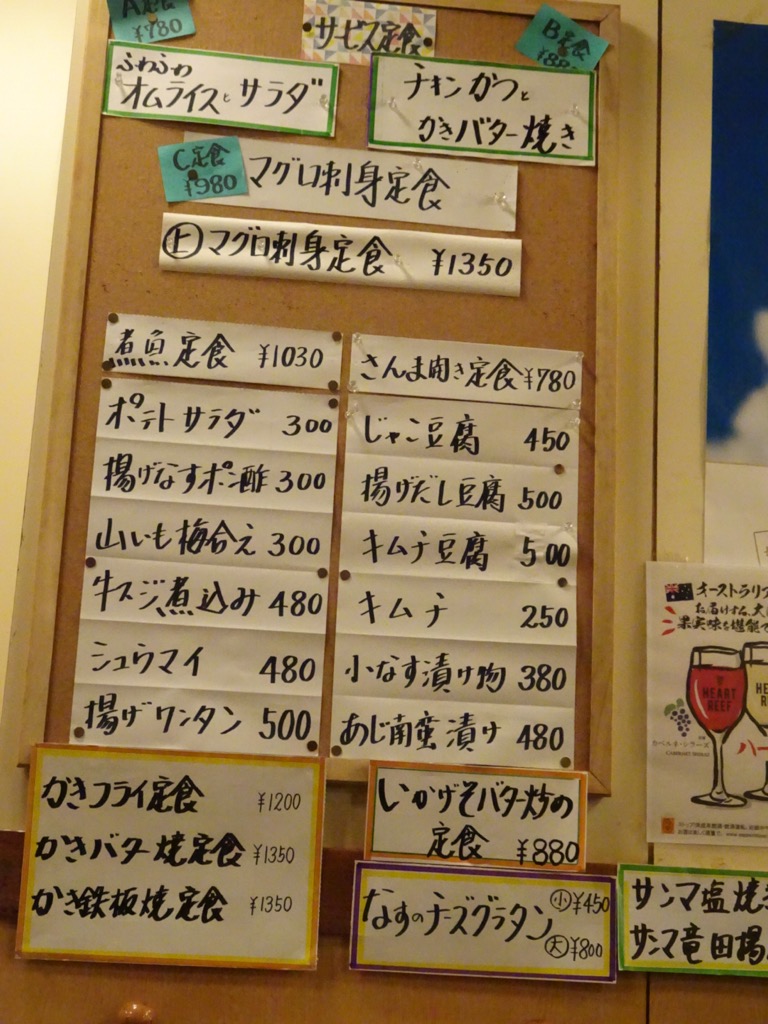 A定食
¥780
サービス定食
B定食
ふわふわ
オムライスとサラダ
チキンかつと
かきバター焼き
C定食
¥980
マグロ刺身定食
上マグロ刺身定食 ¥1350
煮魚定食 ¥1030
ポテトサラダ 300
揚げなすポン酢 300
山いも梅合え 300
牛スジ煮込み 480
シュウマイ 480
揚げワンタン 500
さんま開き定食 ¥780
じゃこ豆腐 450
揚げだし豆腐 500
キムチ豆腐 500
キムチ 250
小なす漬け物 380
あじ南蛮漬け 480
かきフライ定食 ¥1200
かきバター焼定食 ¥1350
かき鉄板焼定食 ¥1350
いかげそバター炒め
定食 ¥880
なすのチーズグラタン 小¥450
大¥800
サンマ塩焼
サンマ竜田揚
オーストラリア
お届けする、大
果実味を堪能
HEART
REEF
カベルネ・シラーズ
CABERNET SHIRAZ
ハー